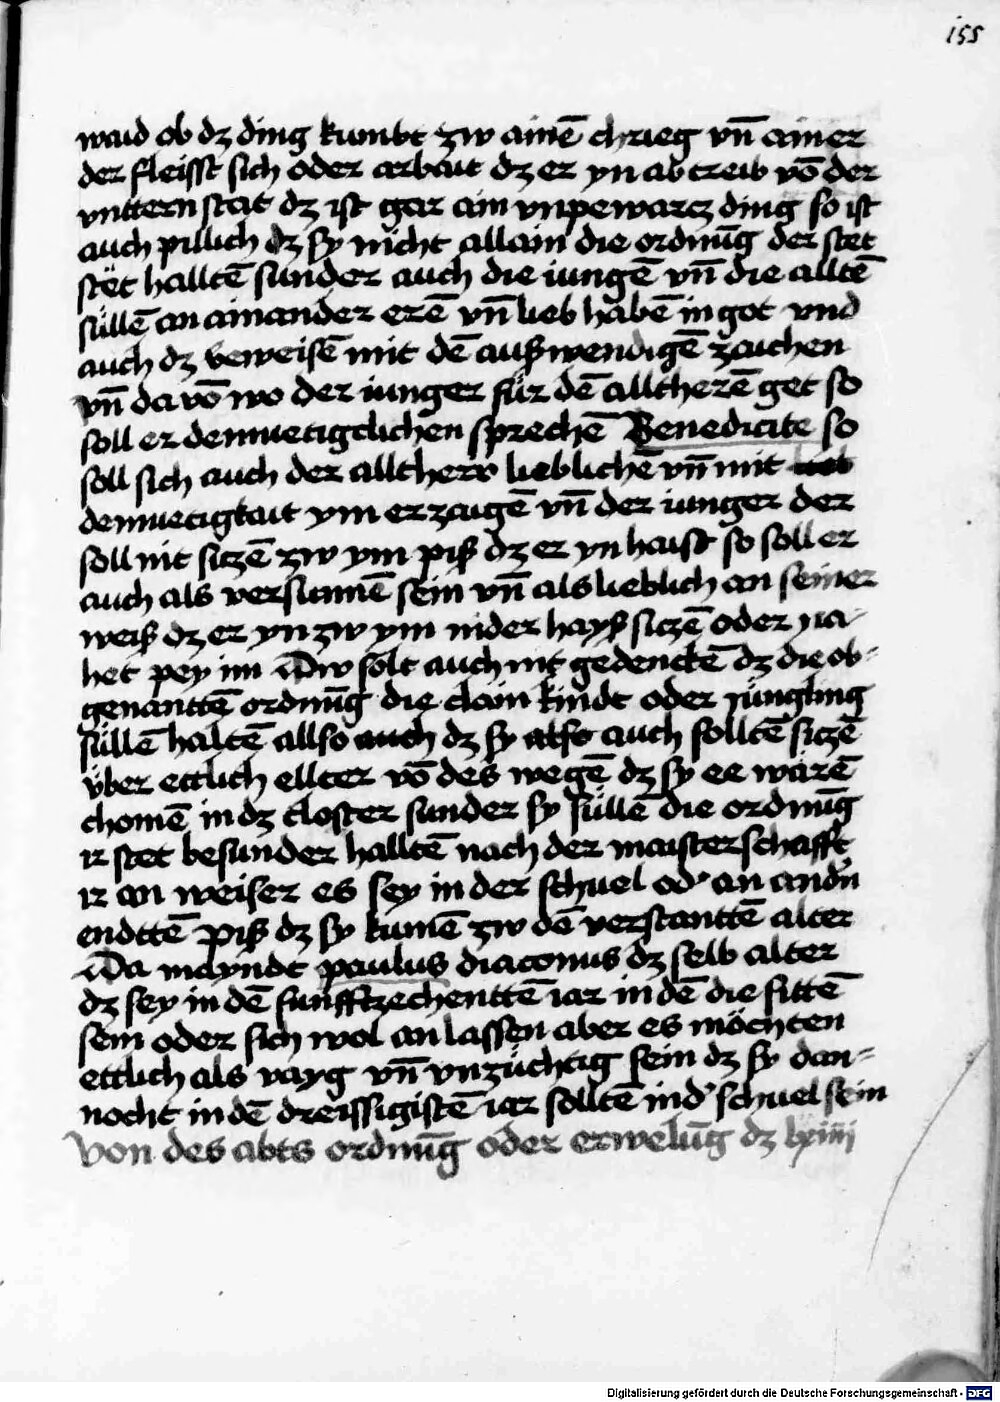 155
waid ob dz ding kumbt zw ainē chrieg vn̄ ainer
der fleisst sich oder arbait dz er yn ab treib vō der
vnttern stat dz ist gar ain vnpewarcz ding so ist
auch pillich dz sy nicht allain die ordnūg der stet
stët halltē sunder auch die iungē vn̄ die alltē
süllē an ainander erē vn̄ lieb habē in got vnd
auch dz beweisē mit dē außwendigē zaichen
vn̄ da vō wo der iunger für dē alltherrē get so
soll er demuetigclichen sprechē Benedicite so
soll sich auch der alltherr lieblichē vn̄ mit
demuetigkait ym erzaigē vn̄ der iunger der
soll nit siczē zw ym piß dz er yn haist so soll er
auch als versūmē sein vn̄ als lieblich an seiner
weiß dz er yn zw ym nider hayß siczē oder na-
het pey im Dw solt auch nit gedenckē dz die ob-
genanttē ordnūg die clain kindt oder jüngling
süllē haltē allso auch dz sy also auch solltē siczē
über ettlich ellter vō des wegē dz sy ee wärē
chomē in dz closter sunder sy süllē die ordnūg
ir stet besunder halltē nach der maisterschafft
ir an weiser es sey in der schuel od' an andn̄
endttē piß dz sy kumē zw dē verstanttē alter
Da mayndt paulus diaconus dz selb alter
dz sey in dē funfftzechenttē iar in dē die sittē
sein oder sich wol an lassen aber es möchten
ettlich als vayg vn̄ vnzüchtig sein dz sy dan-
nocht in dē dreissigistē iar solltē in d' schuel sein
Von des abts ordnūg oder erwelūg dz lxiiij
Digitalisierung gefördert durch die Deutsche Forschungsgemeinschaft - DFG